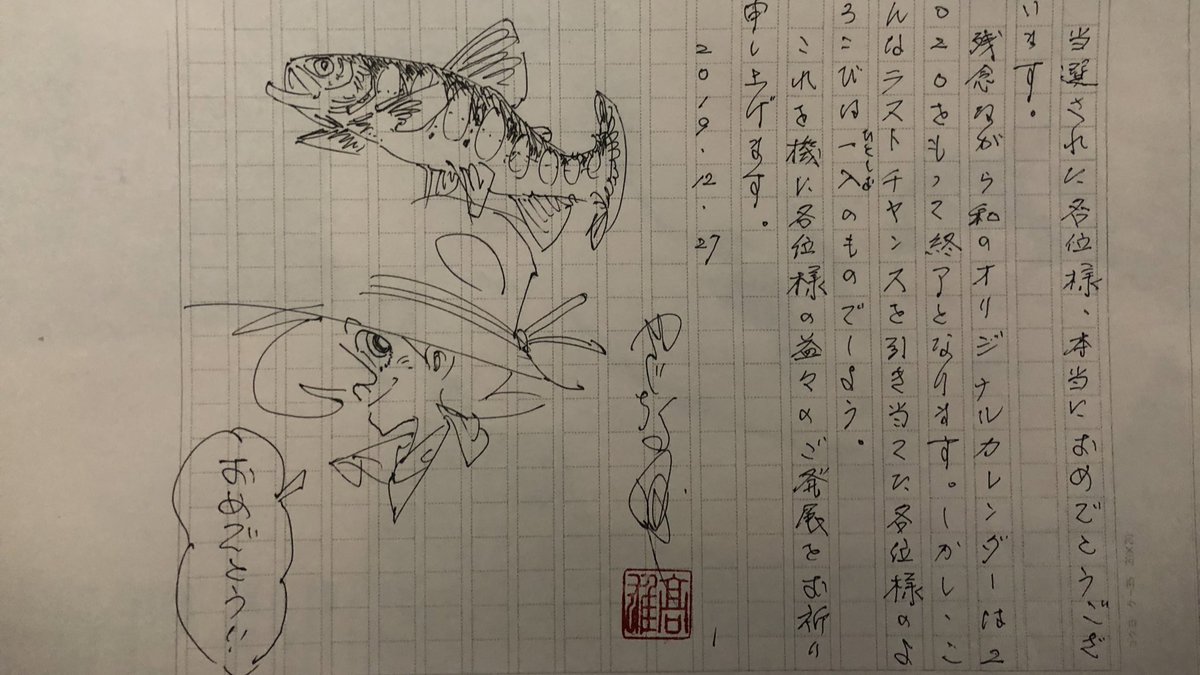 当選された各位様、本当におめでとうござ
います。
残念ながら私のオリジナルカレンダーは2
020をもって終了となります。しかし、こ
んなラストチャンスを引き当てた各位様のよ
ひとしお
ろこびは一入のものでしょう。
これを機に各位様の益々のご発展をお祈り
申し上げます。
2019.12.27
髙雄
1
おめでとう!!